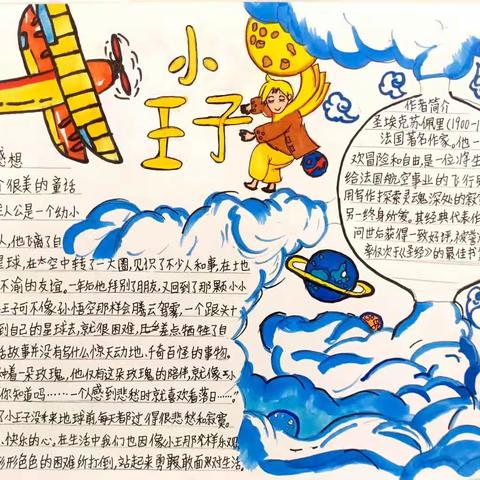 小
王子
感想
个很美的童话
主人公是一个幼小
人，他飞离了自
星球，在太空中转了一大圈，见识了不少人和事，在土也
不渝的友谊。一年后他拜别了朋友，又回到了那颗小小
王子可不像孙悟空那样会腾云驾雾，一个跟头十
到自己的星球去，就很困难，差点牺牲了自
故事并没有写什么惊天动地、千奇百怪的事物。
种着一朵玫瑰，他仅有这朵玫瑰的陪伴，就像
你知道吗……一个人感到悲愁时就喜欢看落日……”
了小王子没来地球前，每天都过得很悲愁和寂寞。
、快乐的心。在生活中我们也因像小王那样乐观
形形色色的困难所打倒，站起来勇敢面对生活。
作者简介
圣埃克苏佩里(1900-1
法国著名作家。他一
欢冒险和自由，是一位将生
给法国航空事业的飞行
用写作探索灵魂深处的寂
另一终身所爱。其经典代表作
问世后获得一致好评，被誉
仅次于《圣经》的最佳书